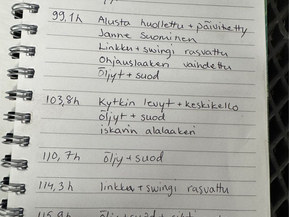 99,1h Alusta huollettu + päivitetty
Janne Suominen
Linkku + swingi rasvattu
Ohjauslaakeri vaihdettu
öljyt + suod
103,8h Kytkin levyt + keskikello
öljyt + suod
iskarin alalaakeri
110,7h öljy + suod
114,3h linkku + swingi rasvattu